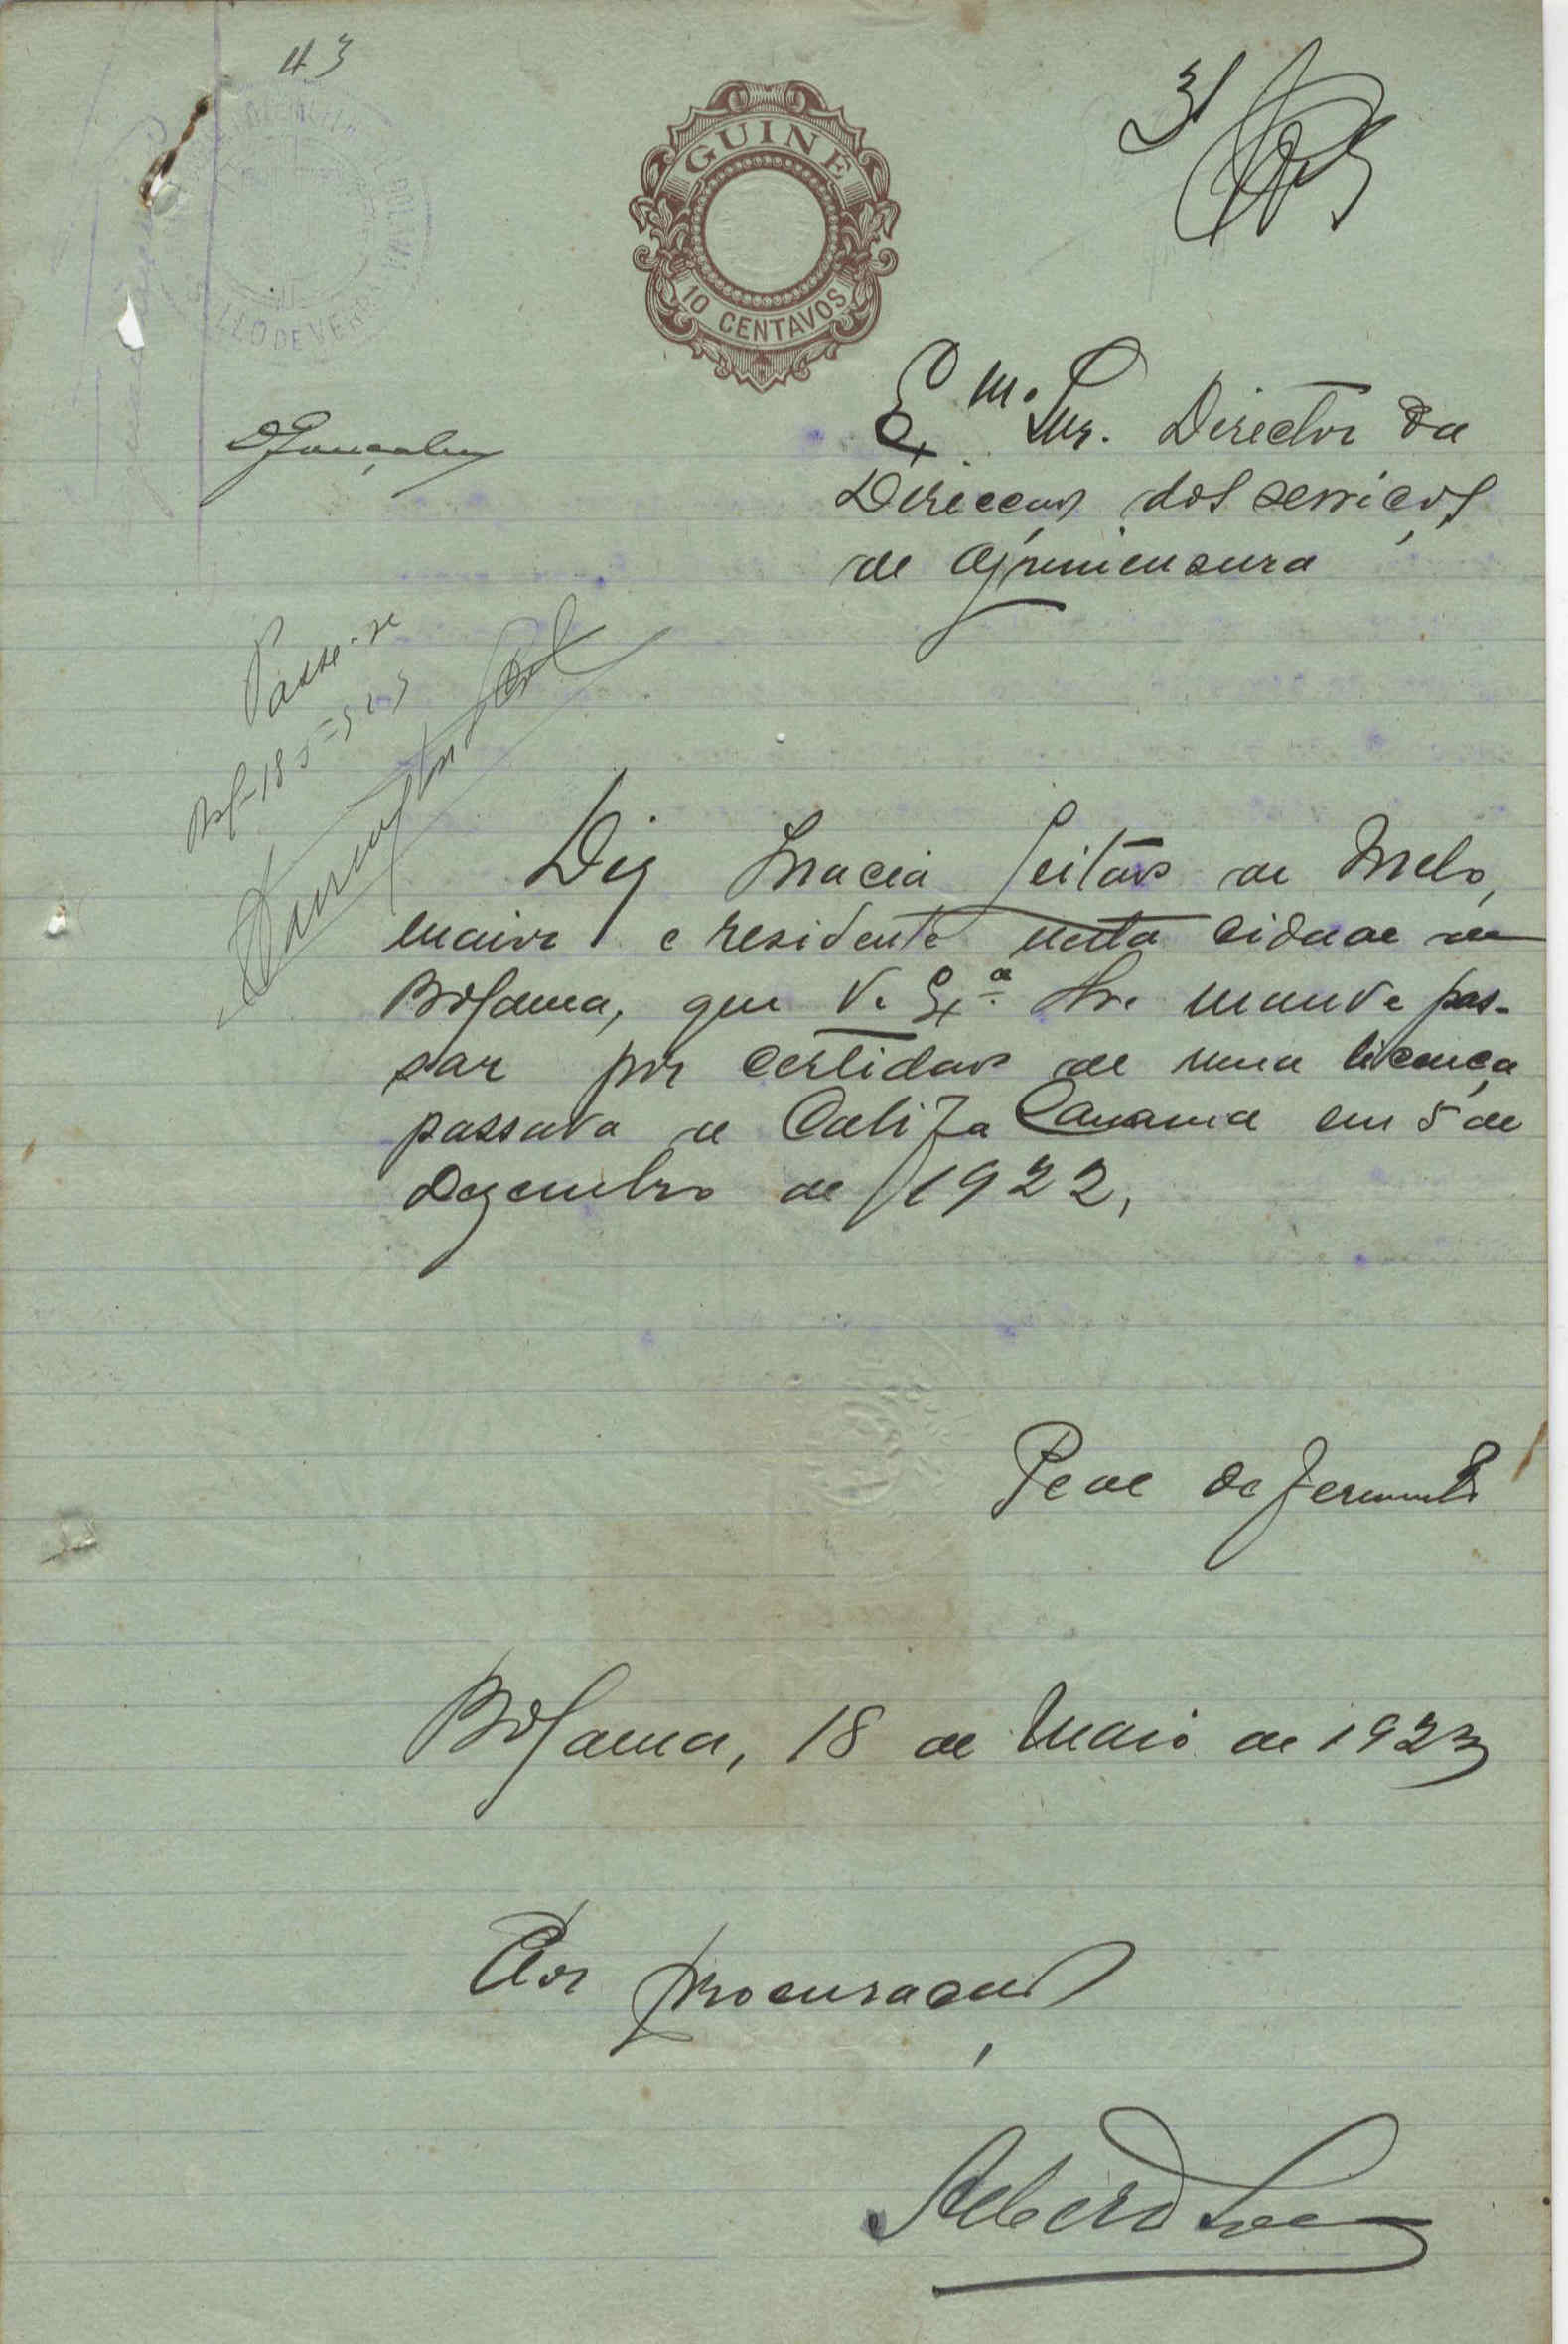 43
31
GUINÉ
10 CENTAVOS
SELLO DE VERBA
BOLAMA
DGonçalves
Ex.mo Snr. Director da
Direcção dos serviços
de Agrimensura
Passe-se
Bol- 18-5-923
Diz Inacia Leitão de Melo,
maior e residente nesta cidade de
Bolama, que V. Ex.ª Sr. mande pas-
sar por certidão de uma licença
passada a Califa Camará em 5 de
Dezembro de 1922,
Pede deferimento
Bolama, 18 de Maio de 1923
Por procuração